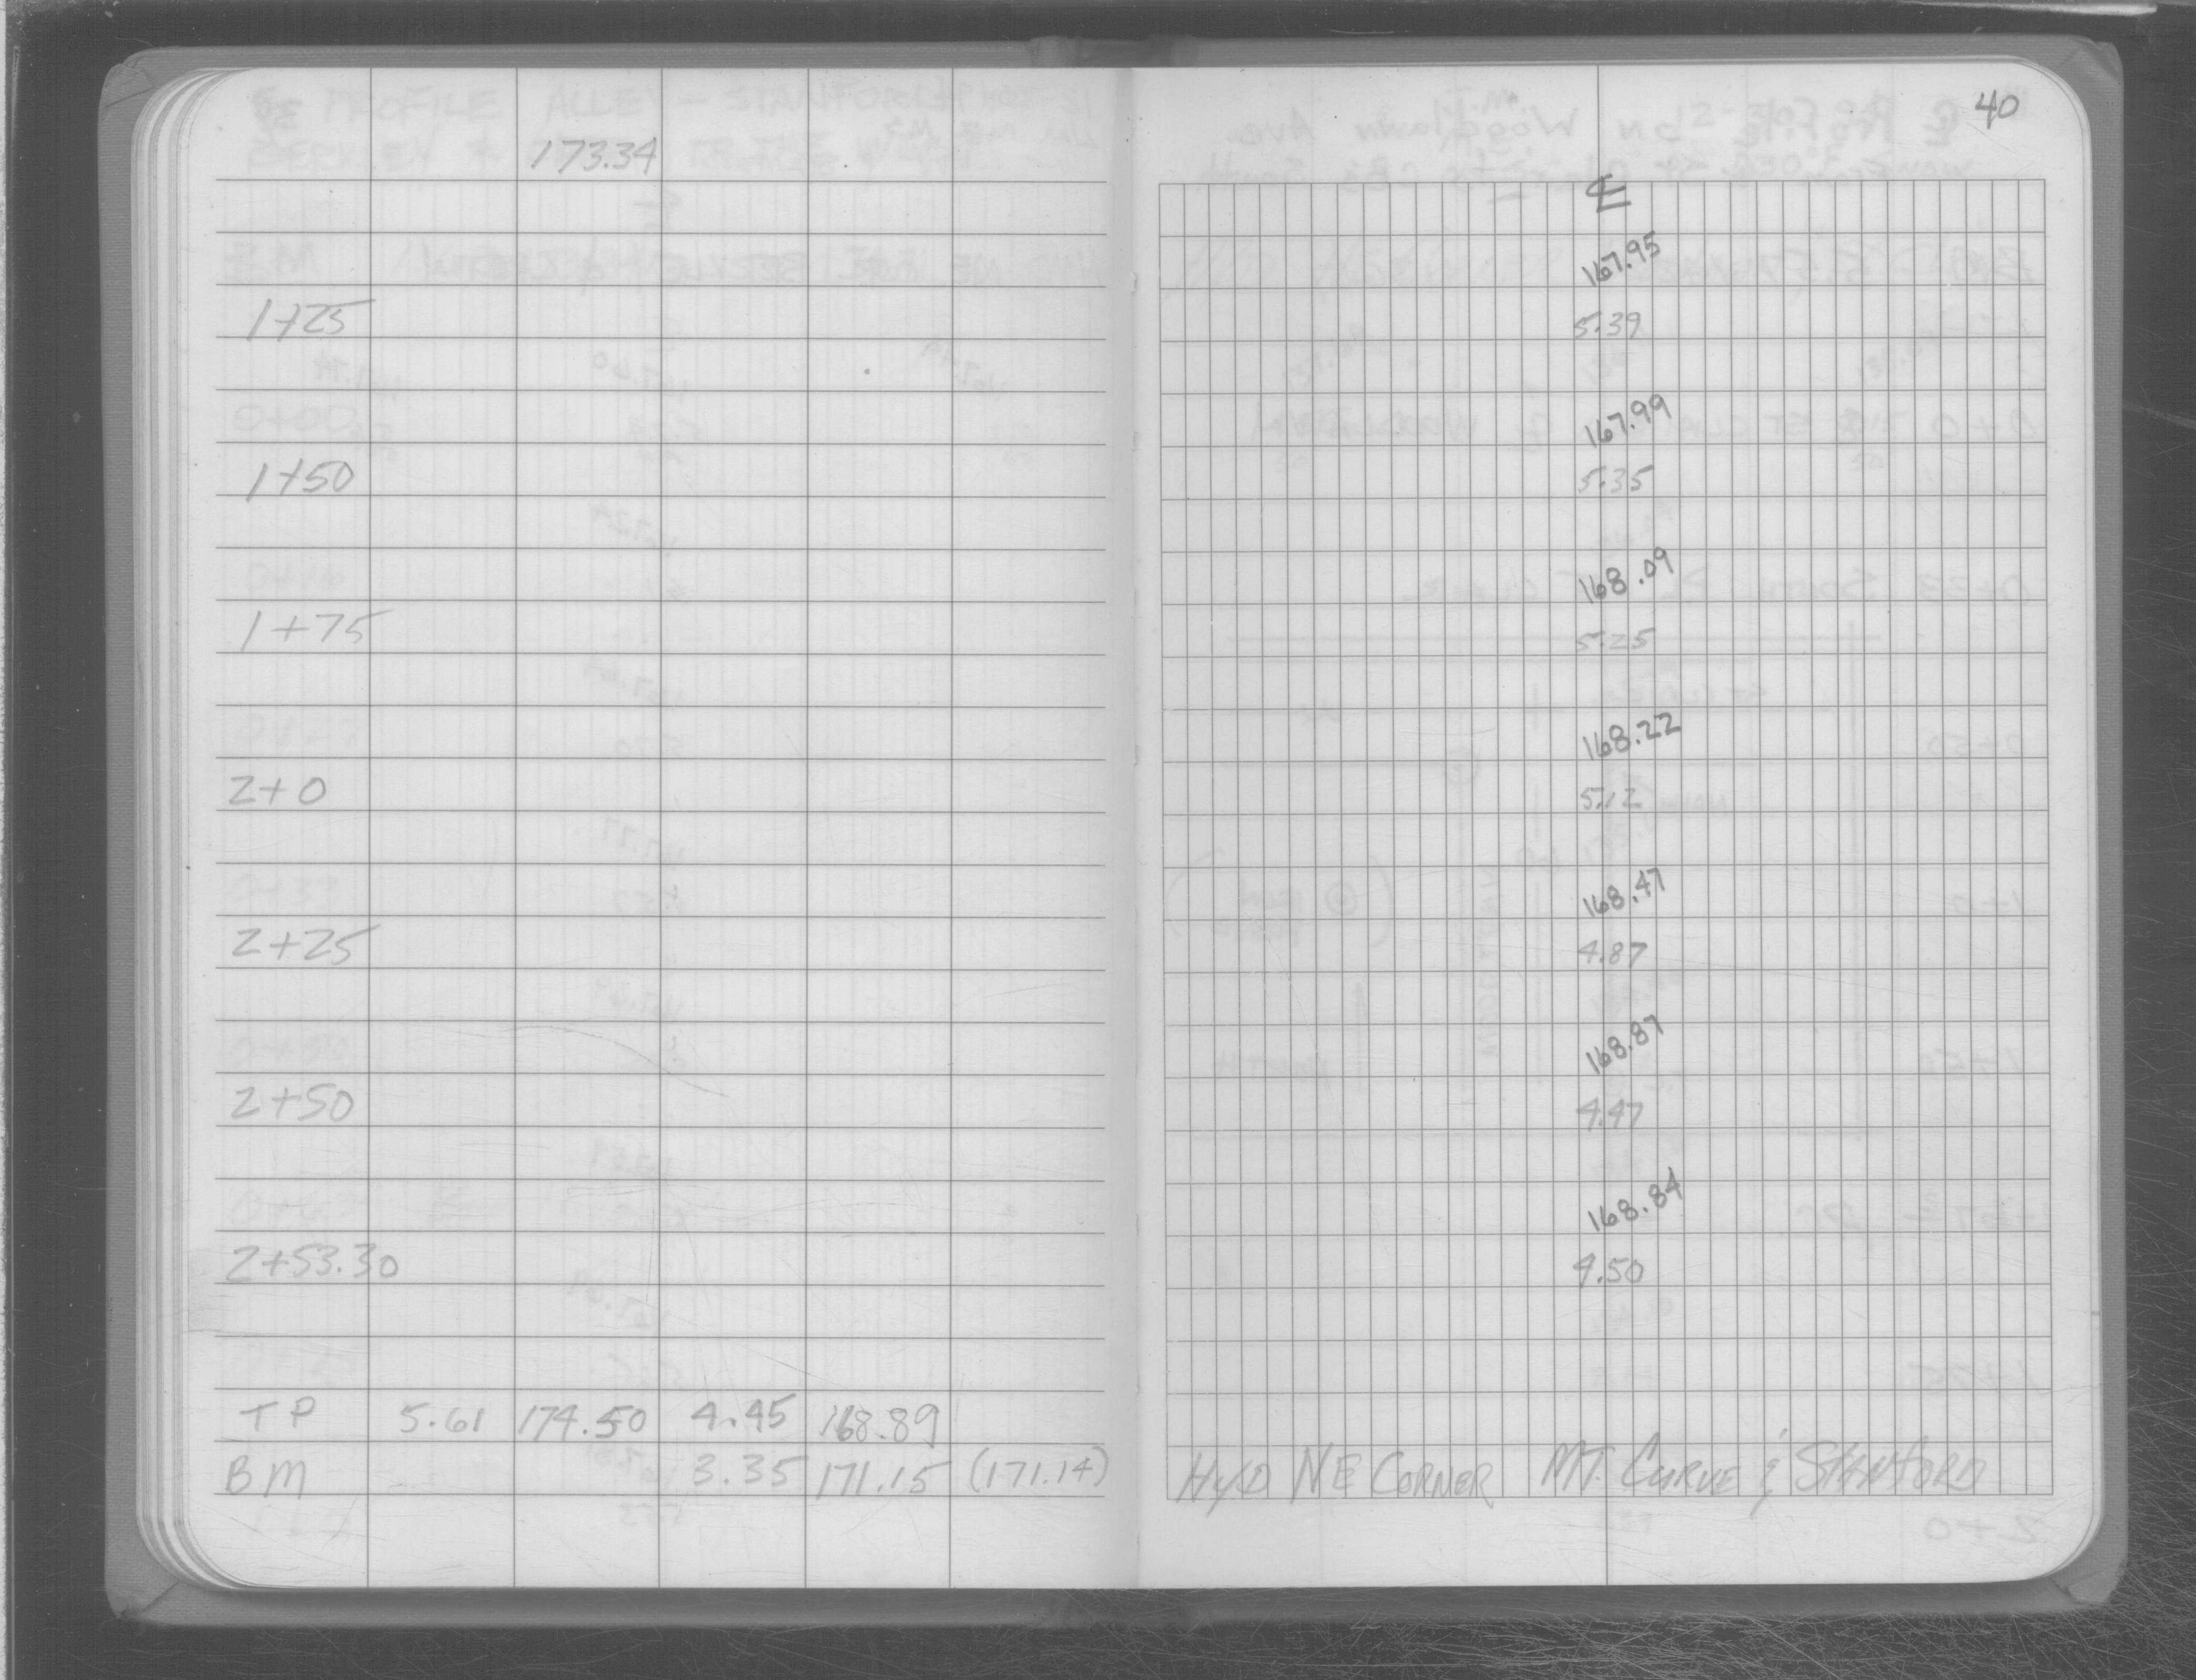 40
173.34
℄
167.95
1+25 5.39
167.99
1+50 5.35
168.09
1+75 5.25
168.22
2+0 5.12
168.47
2+25 4.87
168.87
2+50 4.47
168.84
2+53.30 4.50
TP 5.61 174.50 4.45 168.89
BM 3.35 171.15 (171.14) HYD NE CORNER MT. CURVE & STANFORD